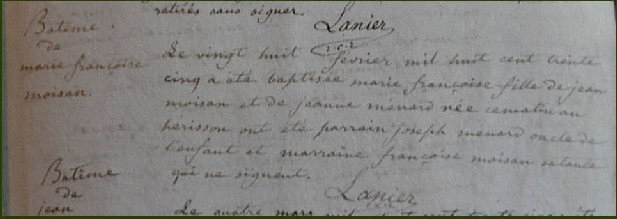 retirés sans signer.
Lanier
Batême
de
marie françoise
moison.
Le vingt huit février mil huit cent trente
cinq a été baptisée marie françoise fille de jean
moison et de jeanne ménard née ce matin au
herisson ont été parrain joseph menard oncle de
l'enfant et marraine françoise moison sa tante
qui ne signent.
Lanier
Batême
de
jean
Le quatre mars mil